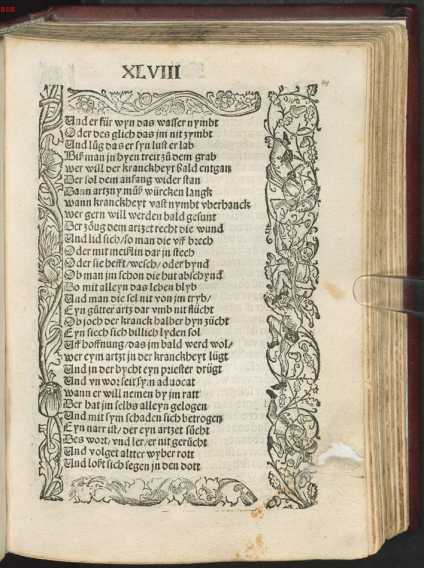 XLVIII
Und er für wyn das wasser nymbt
Oder des glich das jm nit zymbt
Und lůg das er syn lust er lab
Biß man jn hyen treit zů dem grab
wer will der kranckheyt bald entgan
Der sol dem anfang wider stan
Dann artzny můß würcken langk
wann kranckheyt vast nymbt vberhanck
wer gern will werden bald gesunt
Der zöug dem artzet recht die wund
Und lid sich / so man die vff brech
Oder mit meißlin dar jn stech
Oder sie hefft / wesch / oder bynd
Ob man jm schon die hut abschynd
Do mit alleyn das leben blyb
Und man die sel nit von jm tryb /
Eyn gůtter artz dar vmb nit flücht
Ob joch der kranck halber hyn zücht
Eyn siech sich billich lyden sol
Uff hoffnung / das jm bald werd wol /
wer eym artzt jn der kranckheyt lügt
Und jn der bycht eyn priester drügt
Und vn wor seit sym aduocat
wann er will nemen by jm ratt
Der hat jm selbs alleyn gelogen
Und mit sym schaden sich betrogen
Eyn narr ist / der eyn artzet sůcht
Des wort / vnd ler / er nit gerücht
Und volget altter wyber rott
Und loßt sich segen jn den dott